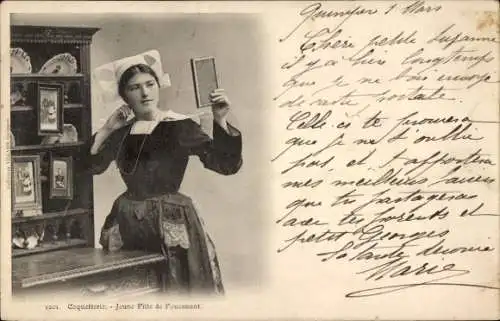 Quimper 1 Mars
Chère petite Suzanne
il y a bien longtemps
que je ne t'ais envoyé
de carte postale.
Celle-ci te prouvera
que je ne t'oublie
pas, et t'apportera
mes meilleurs baisers
que tu partageras
avec tes parents et
petit Georges
Ta tante
Marie
1201. Coquetterie. - Jeune Fille de Fouesnant.